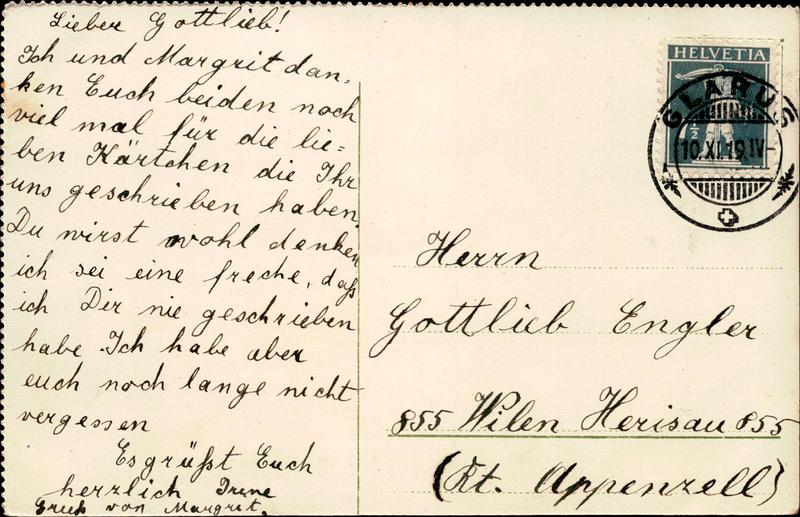 Lieber Gottlieb!
Ich und Margrit dan-
ken Euch beiden noch
viel mal für die lie-
ben Kärtchen die Ihr
uns geschrieben haben.
Du wirst wohl denken
ich sei eine freche, daß
ich Dir nie geschrieben
habe. Ich habe aber
euch noch lange nicht
vergessen
Es grüßt Euch
herzlich Irene
Gruß von Margrit.
HELVETIA
GLARUS
10.XI.19.IV-
Herrn
Gottlieb Engler
855 Wilen Herisau 855
(Kt. Appenzell)